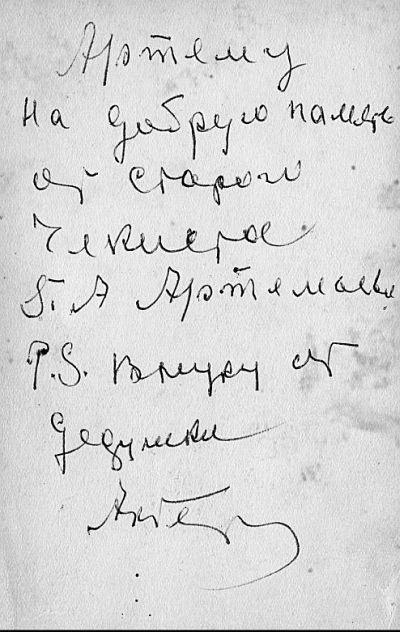 Артему
на добрую память
от старого
чекиста
Б. А Артемов
P.S. внуку от
дедушки